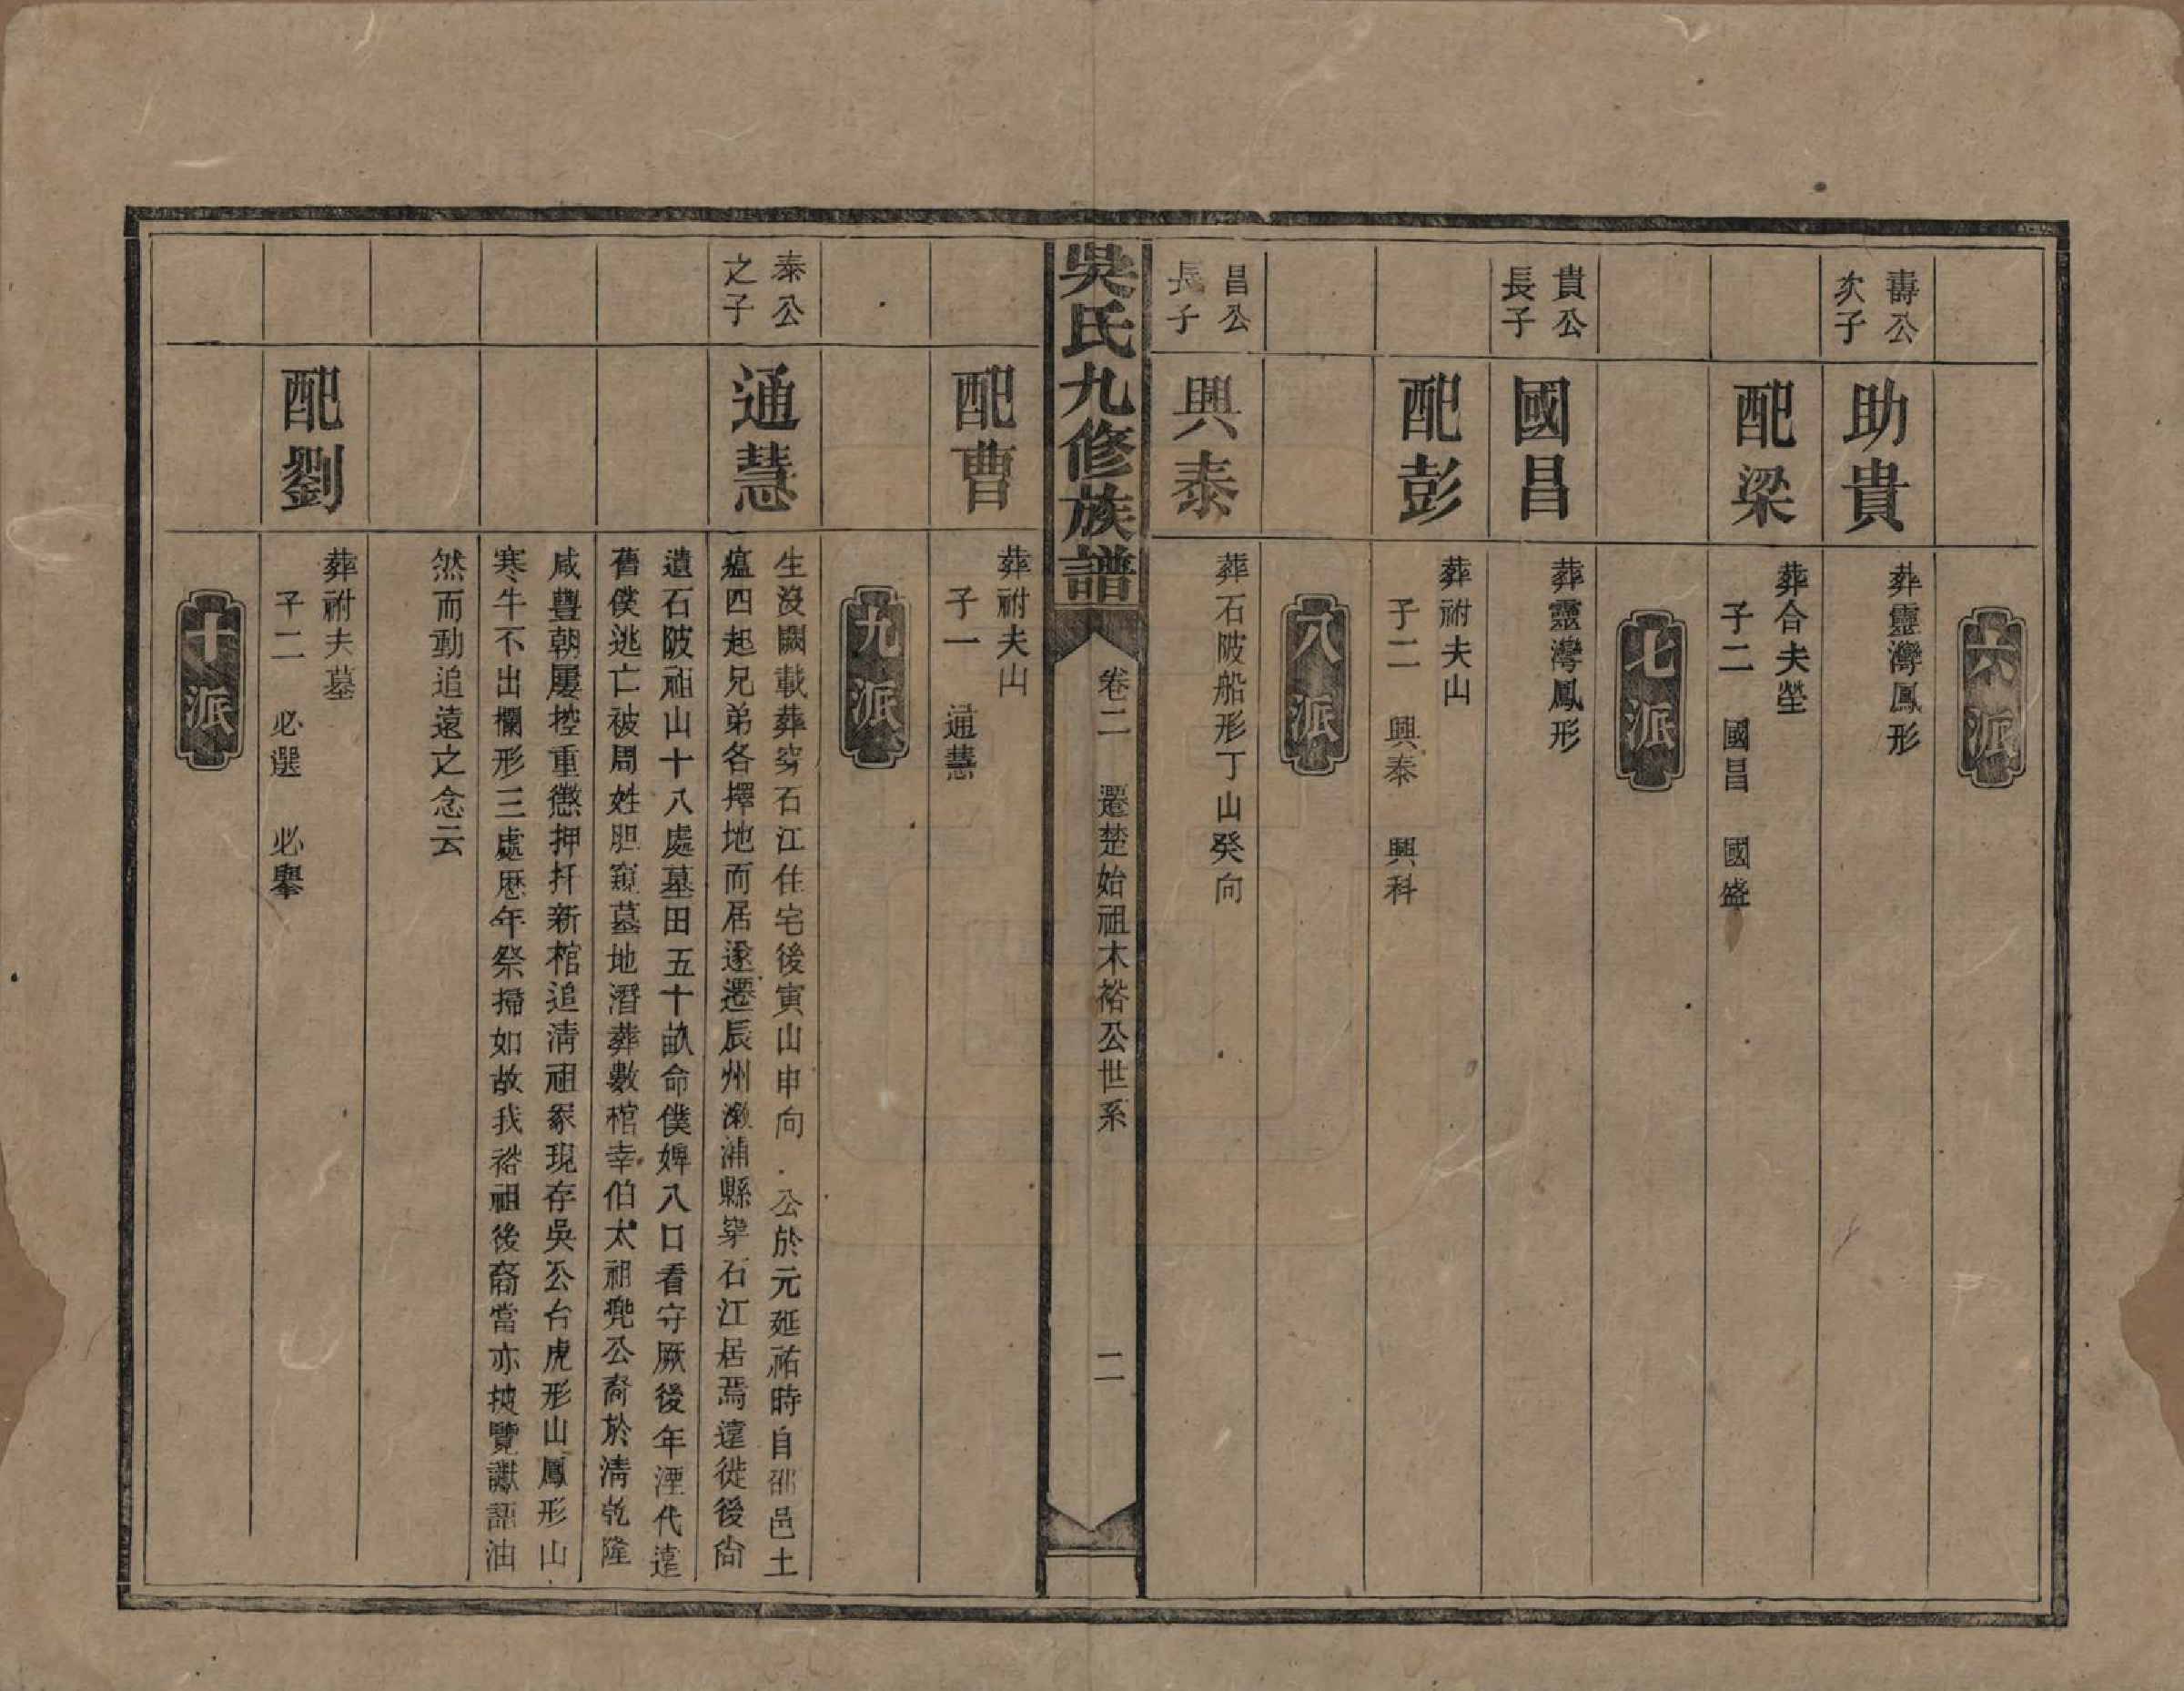 六派
壽公
次子
助貴
葬靈灣鳳形
配梁
葬合夫塋
子二 國昌 國盛
七派
貴公
長子
國昌
葬靈灣鳳形
配彭
葬祔夫山
子二 興泰 興科
八派
昌公
長子
興泰
葬石陂船形丁山癸向
吳氏九修族譜
卷二 遷楚始祖木裕公世系
二
配曹
葬祔夫山
子一 通慧
九派
泰公
之子
通慧
生沒闕載葬穿石江住宅後寅山申向 公於元延祐時自邵邑土
瘟四起兄弟各擇地而居遂遷辰州漵浦縣穿石江居焉遠徙後尙
遺石陂祖山十八處墓田五十畝命僕婢八口看守厥後年湮代遠
舊僕逃亡被周姓胆窺墓地潛葬數棺幸伯太祖兠公裔於淸乾隆
咸豐朝屢控重懲押扦新棺追淸祖冢現存吳公台虎形山鳳形山
寒牛不出欄形三處歷年祭掃如故我裕祖後裔當亦披覽讞語油
然而動追遠之念云
配劉
葬祔夫墓
子二 必選 必舉
十派